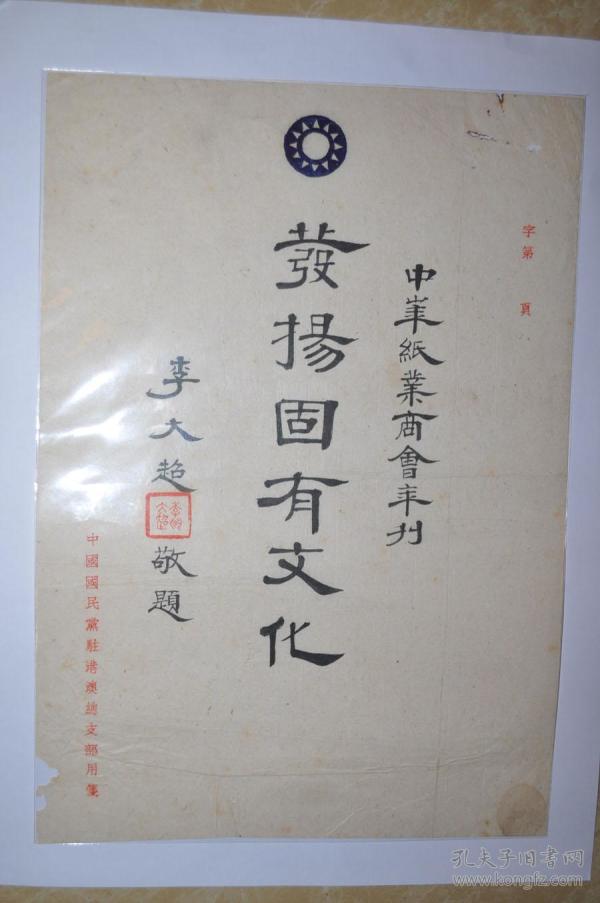 字第 頁
中華紙業商會年刊
發揚固有文化
李大超
敬題
中國國民黨駐港澳總支部用箋
孔夫子旧书网
www.kongfz.com